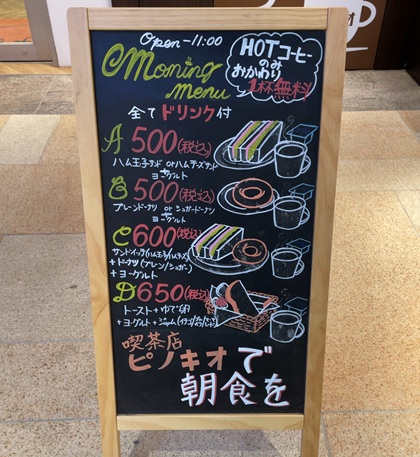 Open-11:00
Morning menu
HOTコーヒーのみおかわり1杯無料
全てドリンク付
A 500(税込)
ハム玉子サンド or ハムチーズサンド
ヨーグルト
B 500(税込)
プレーンドーナツ or シュガードーナツ
ヨーグルト
C 600(税込)
サンドイッチ(ハム玉子/ハムチーズ)
+ドーナツ(プレーン/シュガー)
+ヨーグルト
D 650(税込)
トースト+ゆで卵
+ヨーグルト+ジャム
喫茶店
ピノキオで
朝食を